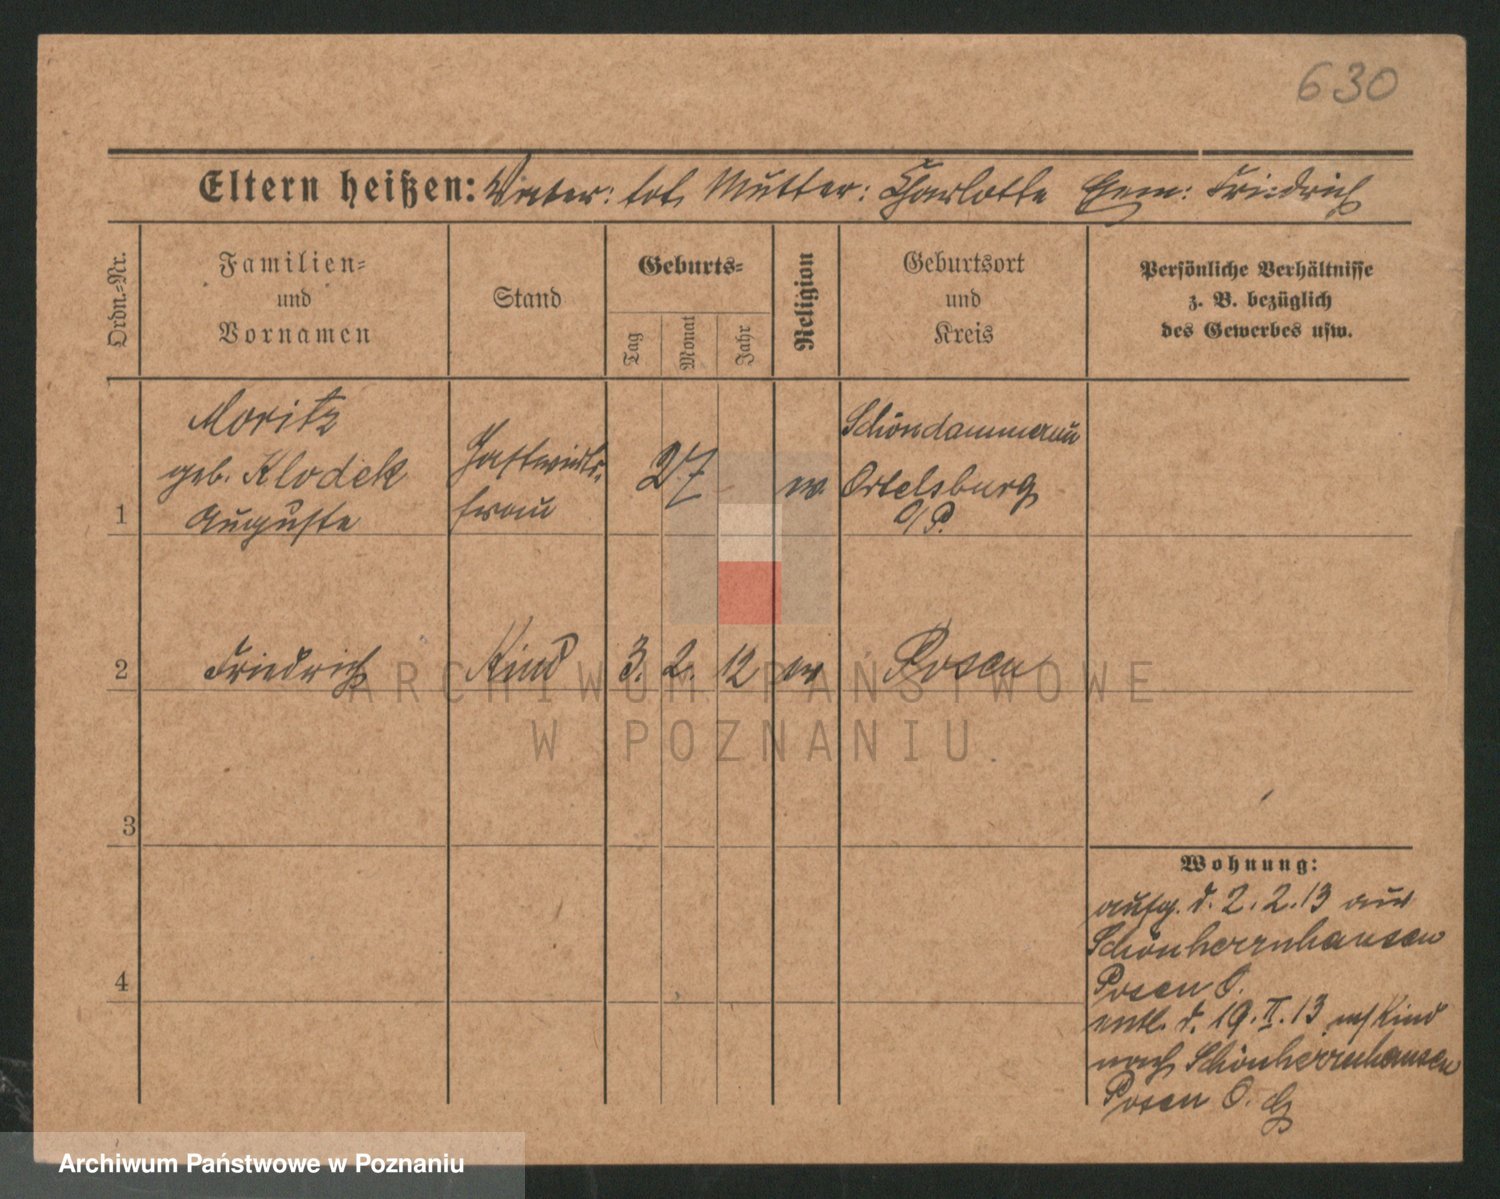 630
Eltern heißen: Vater: tot, Mutter: Charlotte Ehem: Friedrich
Ordn.-Nr.
Familien-
und
Vornamen
Stand
Geburts-
Tag
Monat
Jahr
Religion
Geburtsort
und
Kreis
Persönliche Verhältnisse
z. B. bezüglich
des Gewerbes usw.
1
Moritz
geb. Klodek
Auguste
Gastwirts-
frau
27
ev.
Schöndammerau
Ortelsburg
O/P.
2
Friedrich
Kind
3. 2. 12
ev
Posen
3
4
Wohnung:
aufg. d. 2. 2. 13 aus
Schönherrnhausen
Posen O.
entl. d. 19. II. 13 m/Kind
nach Schönherrnhausen
Posen O.
ARCHIWUM PAŃSTWOWE
W POZNANIU
Archiwum Państwowe w Poznaniu